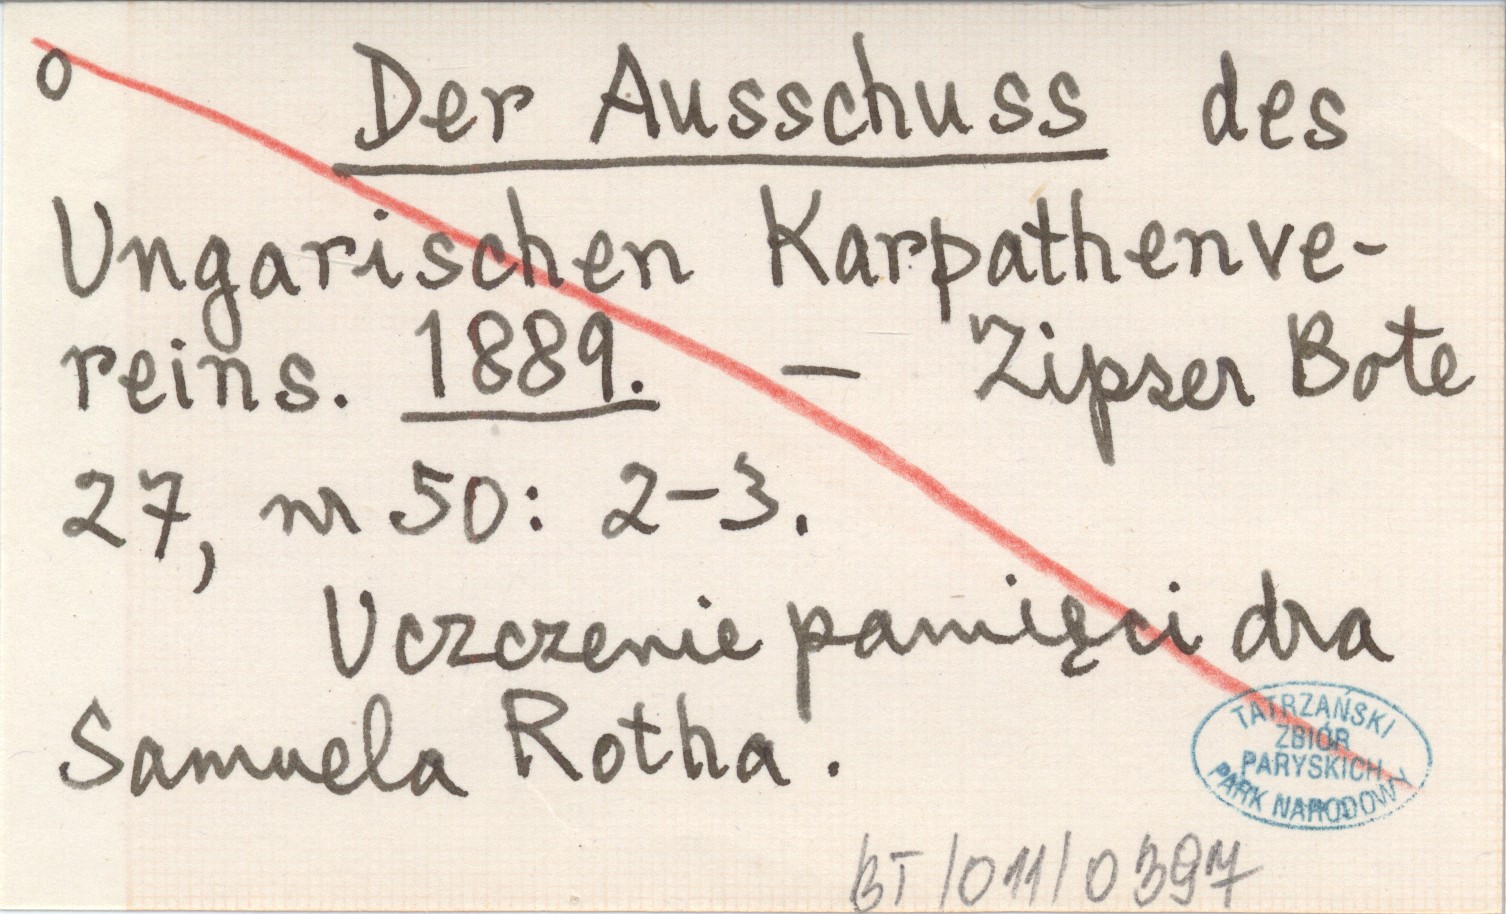 o Der Ausschuss des
Ungarischen Karpathenve-
reins. 1889. — Zipser Bote
27, nr 50: 2-3.
Uczczenie pamięci dra
Samuela Rotha.
TATRZAŃSKI
ZBIÓR
PARYSKICH
PARK NARODOWY
BT/011/0397